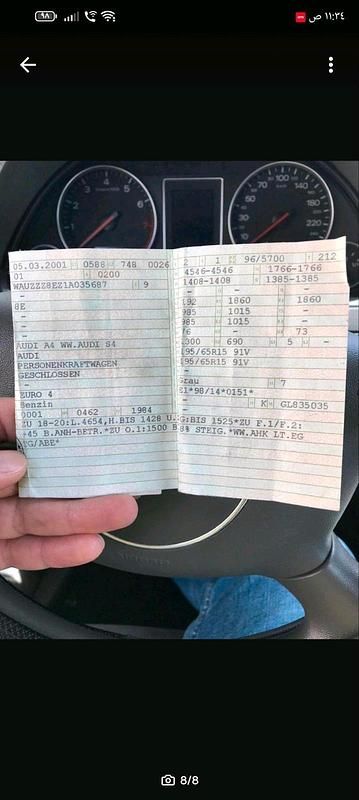 ٩٨
١١:٣٤ ص
05.03.2001 0588 748 0026
01 0200
WAUZZZ8EZ1A035687 9
-
8E
-
-
AUDI A4 WW.AUDI S4
AUDI
PERSONENKRAFTWAGEN
GESCHLOSSEN
-
EURO 4
Benzin
0001 0462 1984
2 1 96/5700 212
4546-4546 1766-1766
1408-1408 1385-1385
- -
192 1860 1860
985 1015 -
985 1015 -
- 73
300 690 5 -
195/65R15 91V
195/65R15 91V
-
Grau 7
E1*98/14*0151*
- K GL835035
ZU 18-20:L.4654,H.BIS 1428 U.G:BIS 1525*ZU F.1/F.2:
+45 B.ANH-BETR.*ZU O.1:1500 B 8% STEIG.*WW.AHK LT.EG
TG/ABE*
8/8